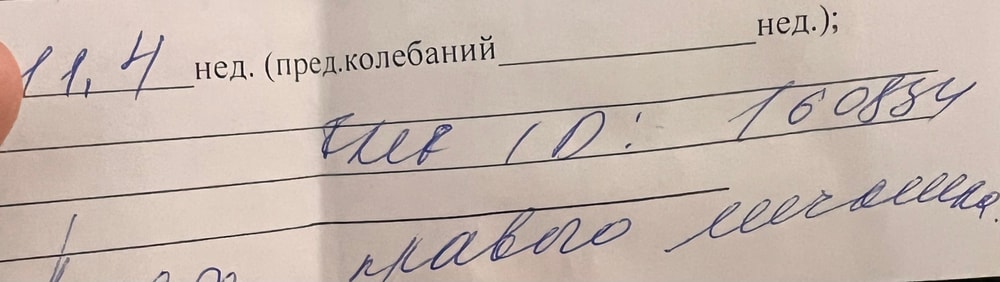 11,4 нед. (пред.колебаний нед.);
ID: 160834
правого яичника